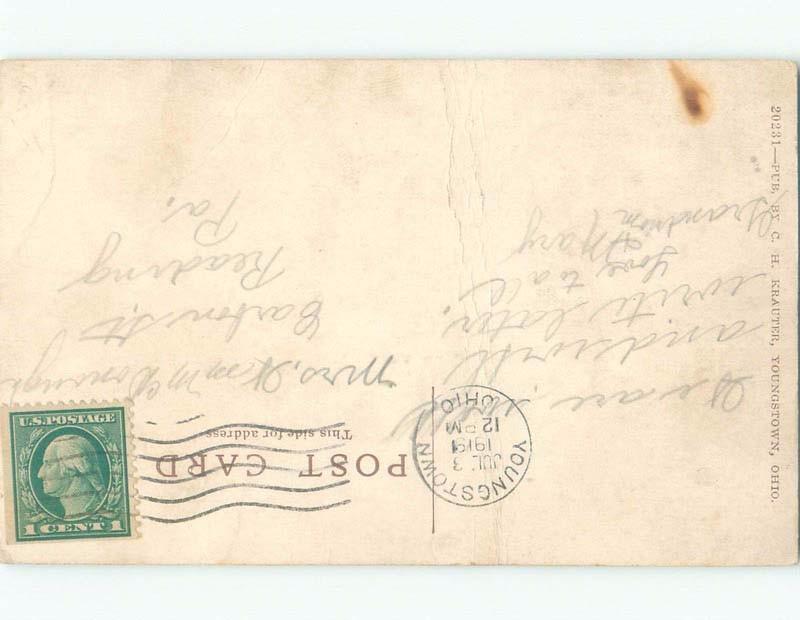 20231—PUB. BY C. H. KRAUTER, YOUNGSTOWN, OHIO.
POST CARD
This side for address
YOUNGSTOWN
JUL 3
12 PM
OHIO
U.S. POSTAGE
1 CENT 1
We are well
and will
write later.
Love to all
Mary
Grandmom
Mrs. Wm McDonough
Carbon St
Reading
Pa.